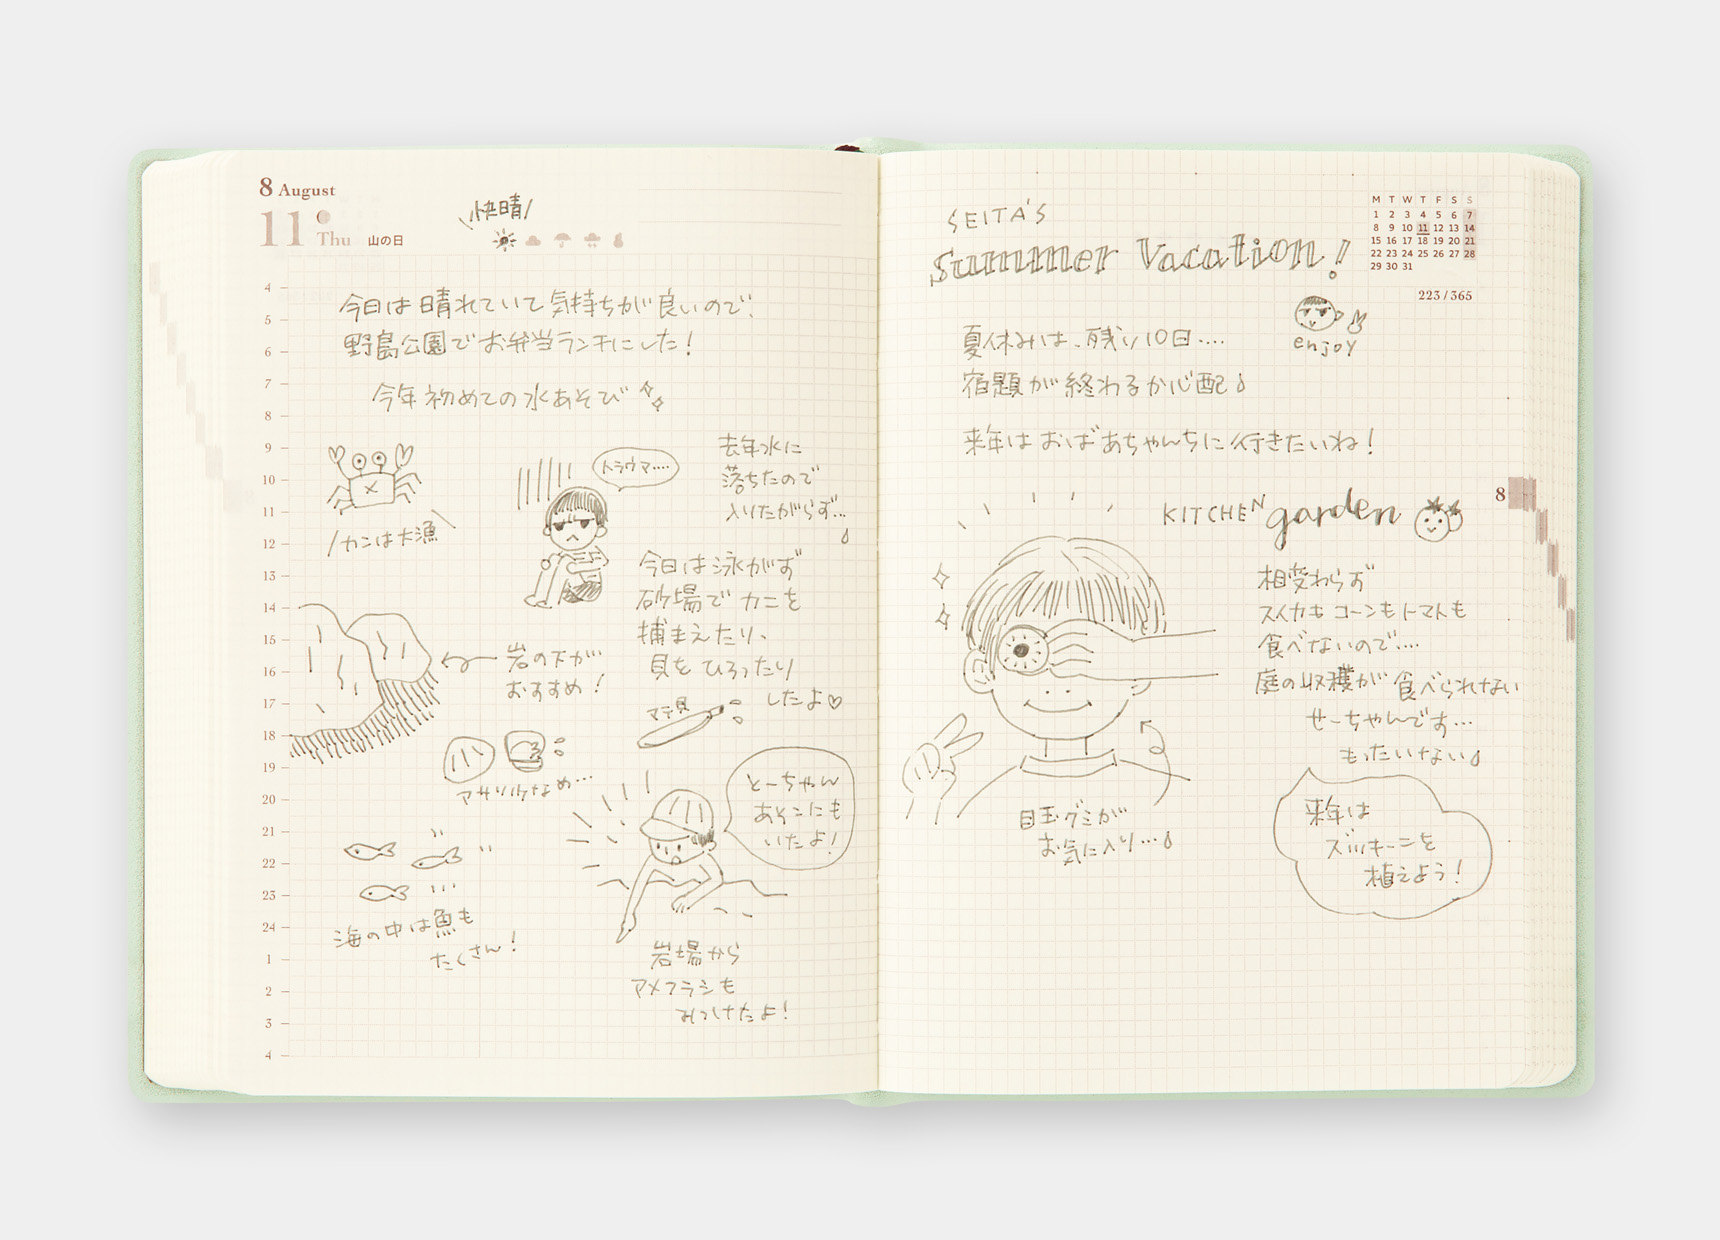 8 August
11 Thu 山の日
快晴
今日は晴れていて気持ちが良いので、
野島公園でお弁当ランチにした！
今年初めての水あそび
去年水に
落ちたので
入りたがらず…
トラウマ….
カニは大漁
今日は泳がず
砂場でカニを
捕まえたり、
貝をひろったり
したよ♡
岩の下が…
おすすめ！
マテ貝
アサリも
とーちゃん
あそこにも
いたよ！
海の中は魚も
たくさん！
岩場から
アメフラシも
みつけたよ！
4
5
6
7
8
9
10
11
12
13
14
15
16
17
18
19
20
21
22
23
24
1
2
3
4
SEITA'S
Summer Vacation!
M T W T F S S
1 2 3 4 5 6 7
8 9 10 11 12 13 14
15 16 17 18 19 20 21
22 23 24 25 26 27 28
29 30 31
223/365
enjoy
夏休みは、残り10日….
宿題が終わるか心配
来年はおばあちゃんちに行きたいね！
8
KITCHEN garden
相変わらず
スイカもコーンもトマトも
食べないので….
庭の収穫が食べられない
せーちゃんです…
もったいない
目玉グミが
お気に入り…
来年は
ズッキーニを
植えよう！